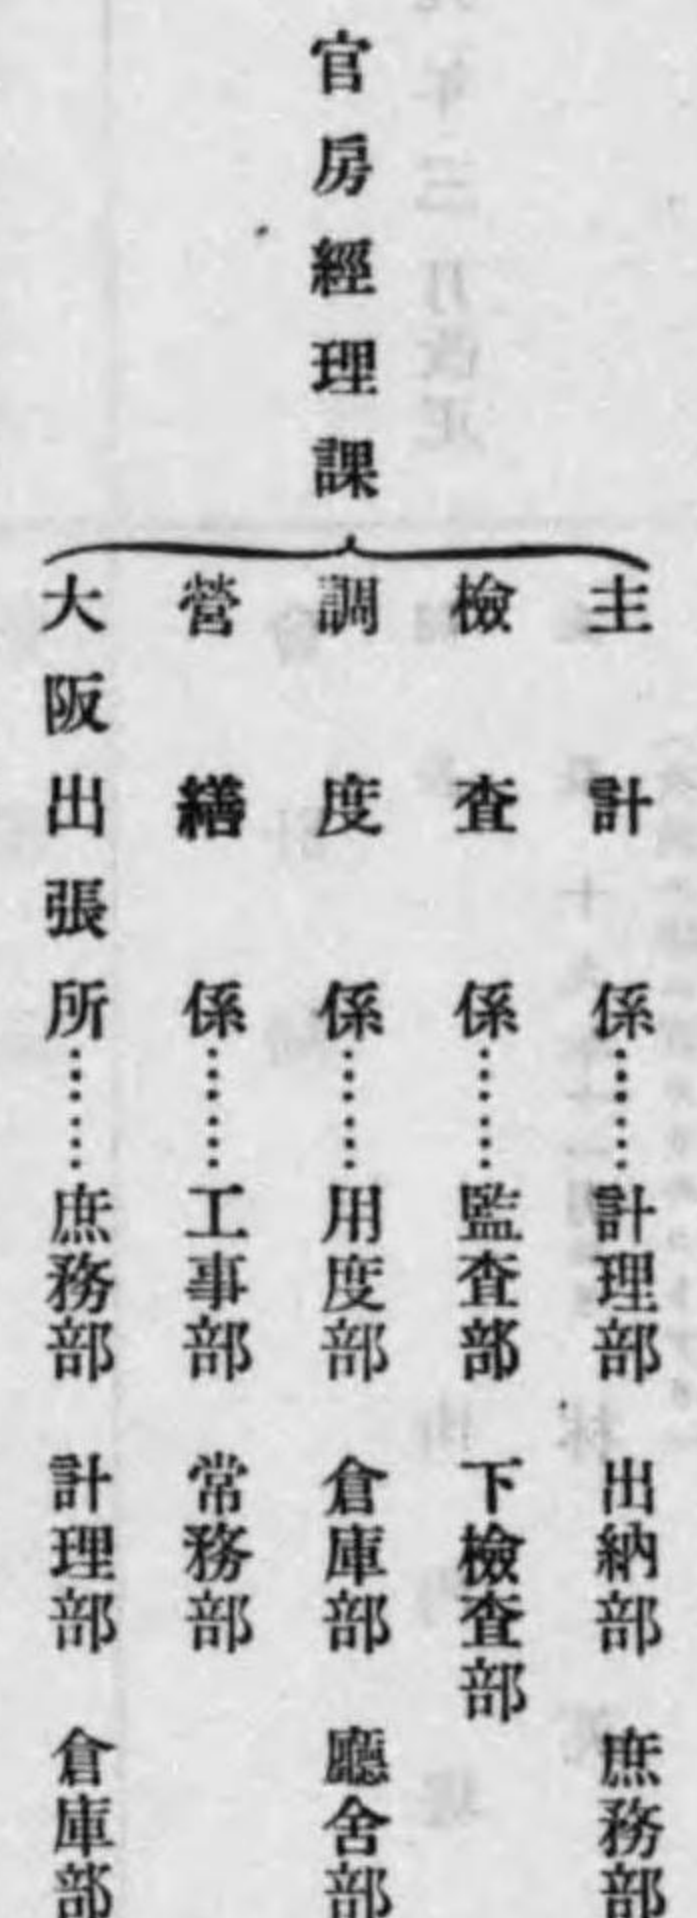 官房經理課
主計係……計理部 出納部 庶務部
檢査係……監査部 下檢査部
調度係……用度部 倉庫部 廳舍部
營繕係……工事部 常務部
大阪出張所……庶務部 計理部 倉庫部